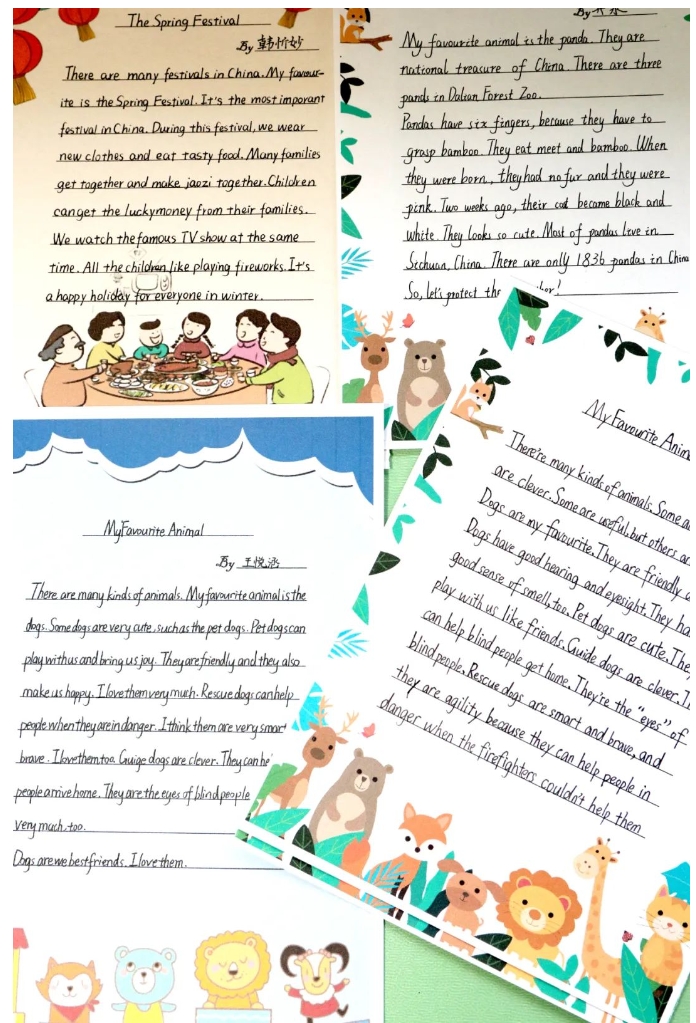 The Spring Festival
By 韩忻妙
There are many festivals in China. My favour-
ite is the Spring Festival. It's the most imporant
festival in China. During this festival, we wear
new clothes and eat tasty food. Many families
get together and make jaozi together. Children
can get the lucky money from their families.
We watch the famous TV show at the same
time. All the children like playing fireworks. It's
a happy holiday for everyone in winter.
By
My favourite animal is the panda. They are
national treasure of China. There are three
pands in Dalean Forest Zoo.
Pandas have six fingers, because they have to
grasp bamboo. They eat meet and bamboo. When
they were born, they had no fur and they were
pink. Two weeks ago, their coat become black and
white. They looks so cute. Most of pandas live in
Sichuan, China. There are only 1836 pandas in China
So, let's protect the
My Favourite Animal
By 王悦涵
There are many kinds of animals. My favourite animal is the
dogs. Some dogs are very cute, such as the pet dogs. Pet dogs can
play with us and bring us joy. They are friendly and they also
make us happy. I love them very much. Rescue dogs can help
people when they are in danger. I think them are very smart
brave. I love them too. Guige dogs are clever. They can he
people arrive home. They are the eyes of blind people
very much, too.
Dogs are we best friends. I love them.
My Favourite Anim
There're many kinds of animals. Some a
are clever. Some are useful, but others ar
Dogs are my favourite. They are friendly a
Dogs have good hearing and eyesight. They ha
good sense of smell, too. Pet dogs are cute. They
play with us like friends. Guide dogs are clever. Th
can help blind people get home. They're the "eyes" of
blind people. Rescue dogs are smart and brave, and
they are agility because they can help people in
danger when the firefighters couldn't help them